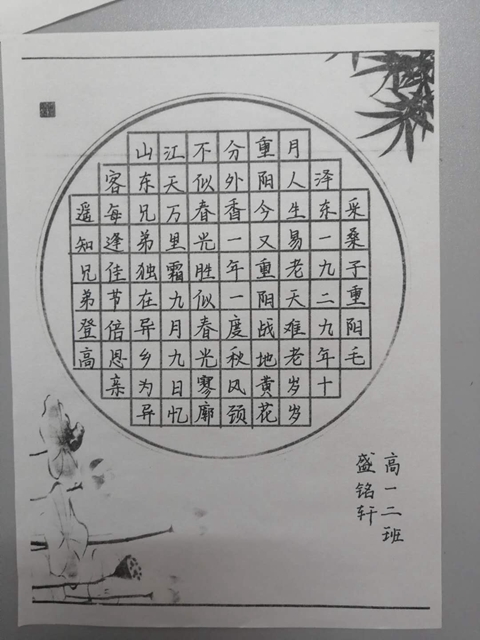 采桑子重阳毛
泽东一九二九年十
月人生易老天难老岁岁
重阳今又重阳战地黄花
分外香一年一度秋风颈
不似春光胜似春光寥廓
江天万里霜九月九日忆
山东兄弟独在异乡为异
客每逢佳节倍恩亲
遥知兄弟登高
高一二班
盛铭轩